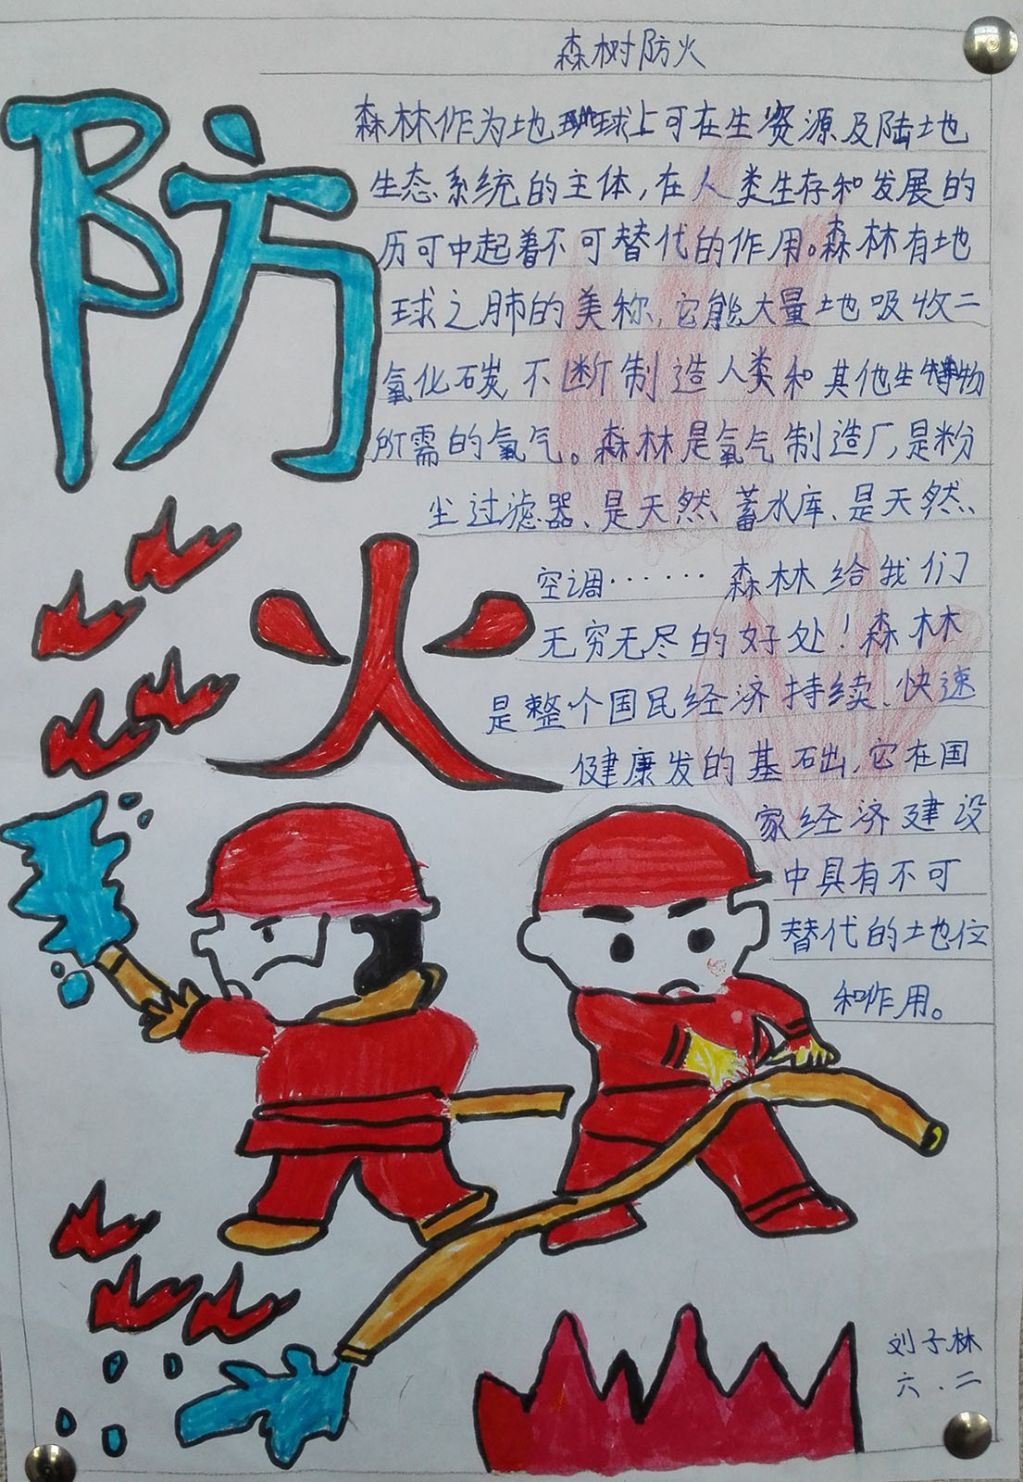 森树防火
防火
森林作为地球上可在生资源及陆地
生态系统的主体,在人类生存和发展的
历可中起着不可替代的作用。森林有地
球之肺的美称,它能大量地吸收二
氧化碳,不断制造人类和其他生物
所需的氧气。森林是氧气制造厂,是粉
尘过滤器、是天然、蓄水库、是天然、
空调……森林给我们
无穷无尽的好处!森林
是整个国民经济持续、快速
健康发的基础,它在国
家经济建设
中具有不可
替代的地位
和作用。
刘子林
六.二